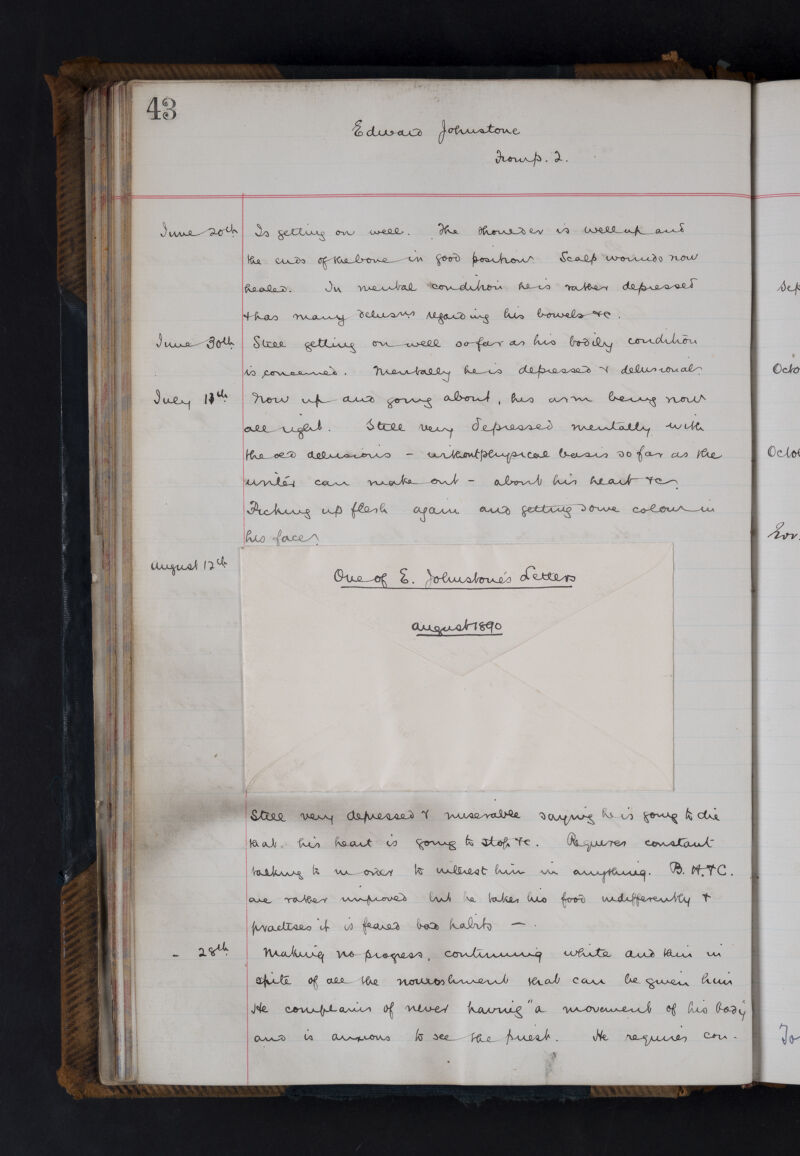 43
Edward Johnstone
From p. 2.
June 20th Is getting on well. The shoulder is well up and
the ends of the bone in good position. Scalp wounds now
healed. In mental condition he is rather depressed
& has many delusns regarding his bowels &c.
June 30th Still getting on well so far as his bodily condition
is concerned. Mentally he is depressed & delusional.
July 11th Now up and going about, his arm being now
all right. Still very depressed mentally with
the old delusions - without physical basis so far as the
writer can make out - about his heart &c.
Picking up flesh again and getting some colour in
his face.
August 12th
One of E. Johnstone's Letters
August 1890
Still very depressed & miserable saying he is going to die
that his heart is going to stop &c. Requires constant
talking to in order to interest him in anything. B. H. & C.
are rather improved but he takes his food indifferently &
practises it is feared bad habits -.
- 28th Making no progress, continuing white and thin in
spite of all the nourishment that can be given him
He complains of never having "a movement of his body
and is anxious to see the priest. He requires con-
Octo
Octo
Nov.